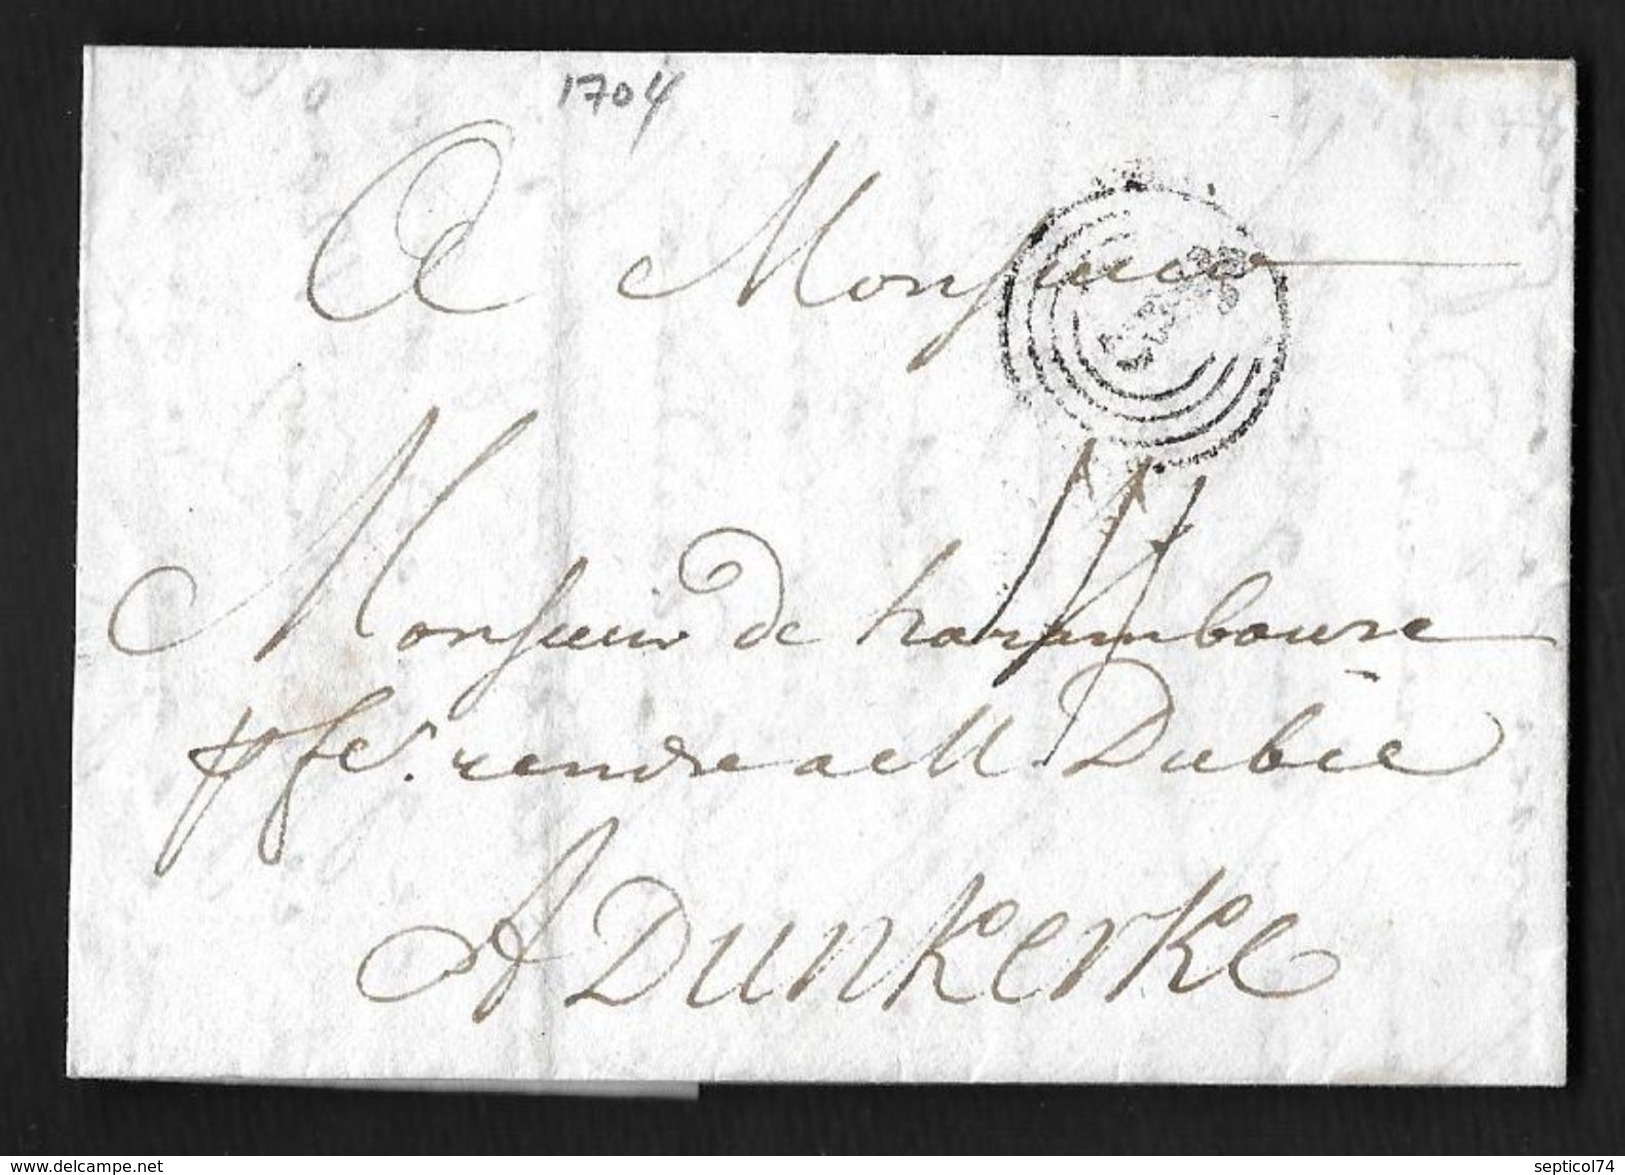 1704
A Monsieur
Monsieur de haramboure
pr fer. rendre a M Dubie
A Dunkerke
www.delcampe.net
septicol74